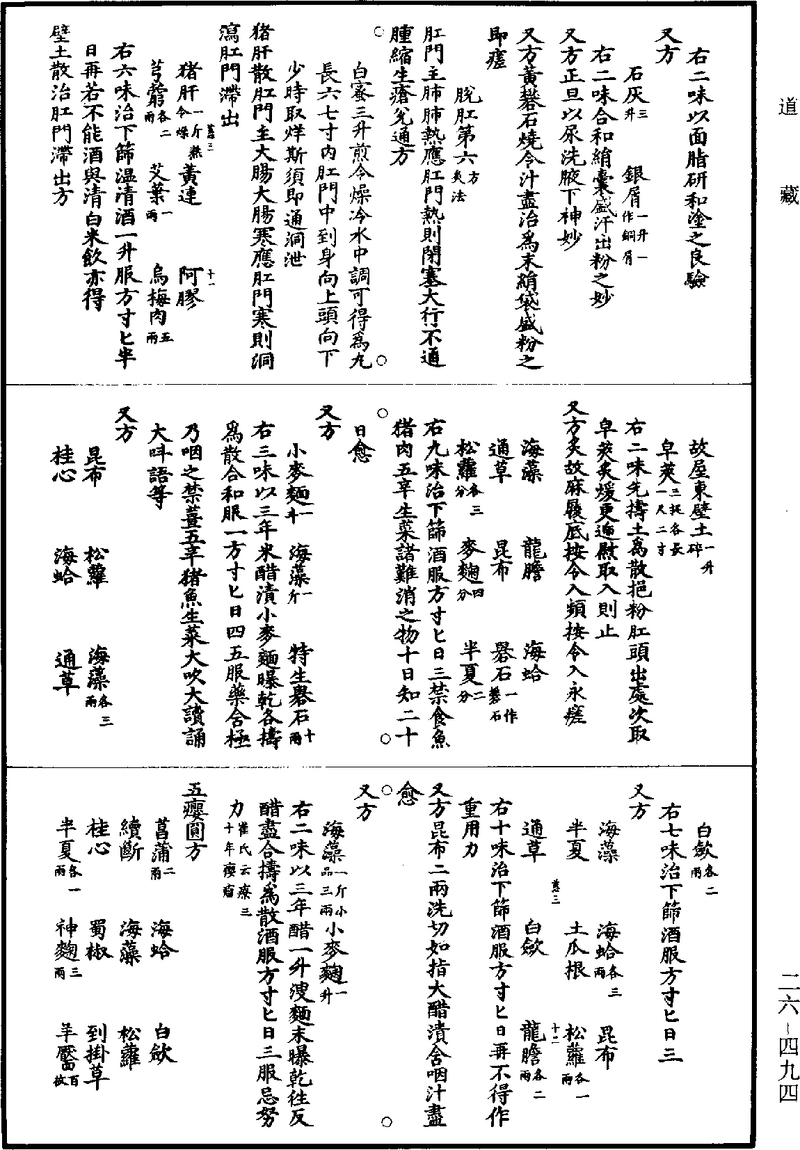 道藏
右二味以面脂研和塗之良驗
又方
石灰三升 銀屑一升一作銅屑
右二味合和絹囊盛汗出粉之妙
又方正旦以尿洗腋下神妙
又方黃礬石燒令汁盡治爲末絹袋盛粉之
即瘥
脫肛第六方灸法
肛門主肺肺熱應肛門熱則閉塞大行不通
腫縮生瘡兌通方
白蜜三升煎令燥冷水中調可得爲丸
長六七寸內肛門中到身向上頭向下
少時取烊斯須即通洞泄
猪肝散肛門主大腸大腸寒應肛門寒則洞
瀉肛門滯出
猪肝一斤熬令燥 黃連 阿膠
芎藭各二兩 艾葉一兩 烏梅肉五兩
右六味治下篩溫清酒一升服方寸匕半
日再若不能酒與清白米飲亦得
壁土散治肛門滯出方
故屋東壁土一升碎
皁莢三挺各長一尺二寸
右二味先擣土爲散挹粉肛頭出處次取
皁莢炙煖更遍熨取入則止
又方炙故麻履底按令入頻按令入永瘥
海藻 龍膽 海蛤
通草 昆布 礜石一作礬石
松蘿各三分 麥麴四分 半夏二分
右九味治下篩酒服方寸匕日三禁食魚
猪肉五辛生菜諸難消之物十日知二十
日愈
又方
小麥麵一斗 海藻一斤 特生礜石十兩
右三味以三年米醋漬小麥麵曝乾各擣
爲散合和服一方寸匕日四五服藥含極
乃咽之禁薑五辛猪魚生菜大吹大讀誦
大呌語等
又方
昆布 松蘿 海藻各三兩
桂心 海蛤 通草
白斂各二兩
右七味治下篩酒服方寸匕日三
又方
海藻 海蛤各三兩 昆布
半夏 土瓜根 松蘿各一兩
通草 白斂 龍膽各二兩
右十味治下篩酒服方寸匕日再不得作
重用力
又方昆布二兩洗切如指大醋漬含咽汁盡
愈
又方
海藻一斤小品三兩 小麥麴一升
右二味以三年醋一升溲麵末曝乾往反
醋盡合擣爲散酒服方寸匕日三服忌努
力崔氏云療三十年癭瘤
五癭圓方
菖蒲二兩 海蛤 白斂
續斷 海藻 松蘿
桂心 蜀椒 到掛草
半夏各一兩 神麴三兩 羊靨百枚
二六－四九四